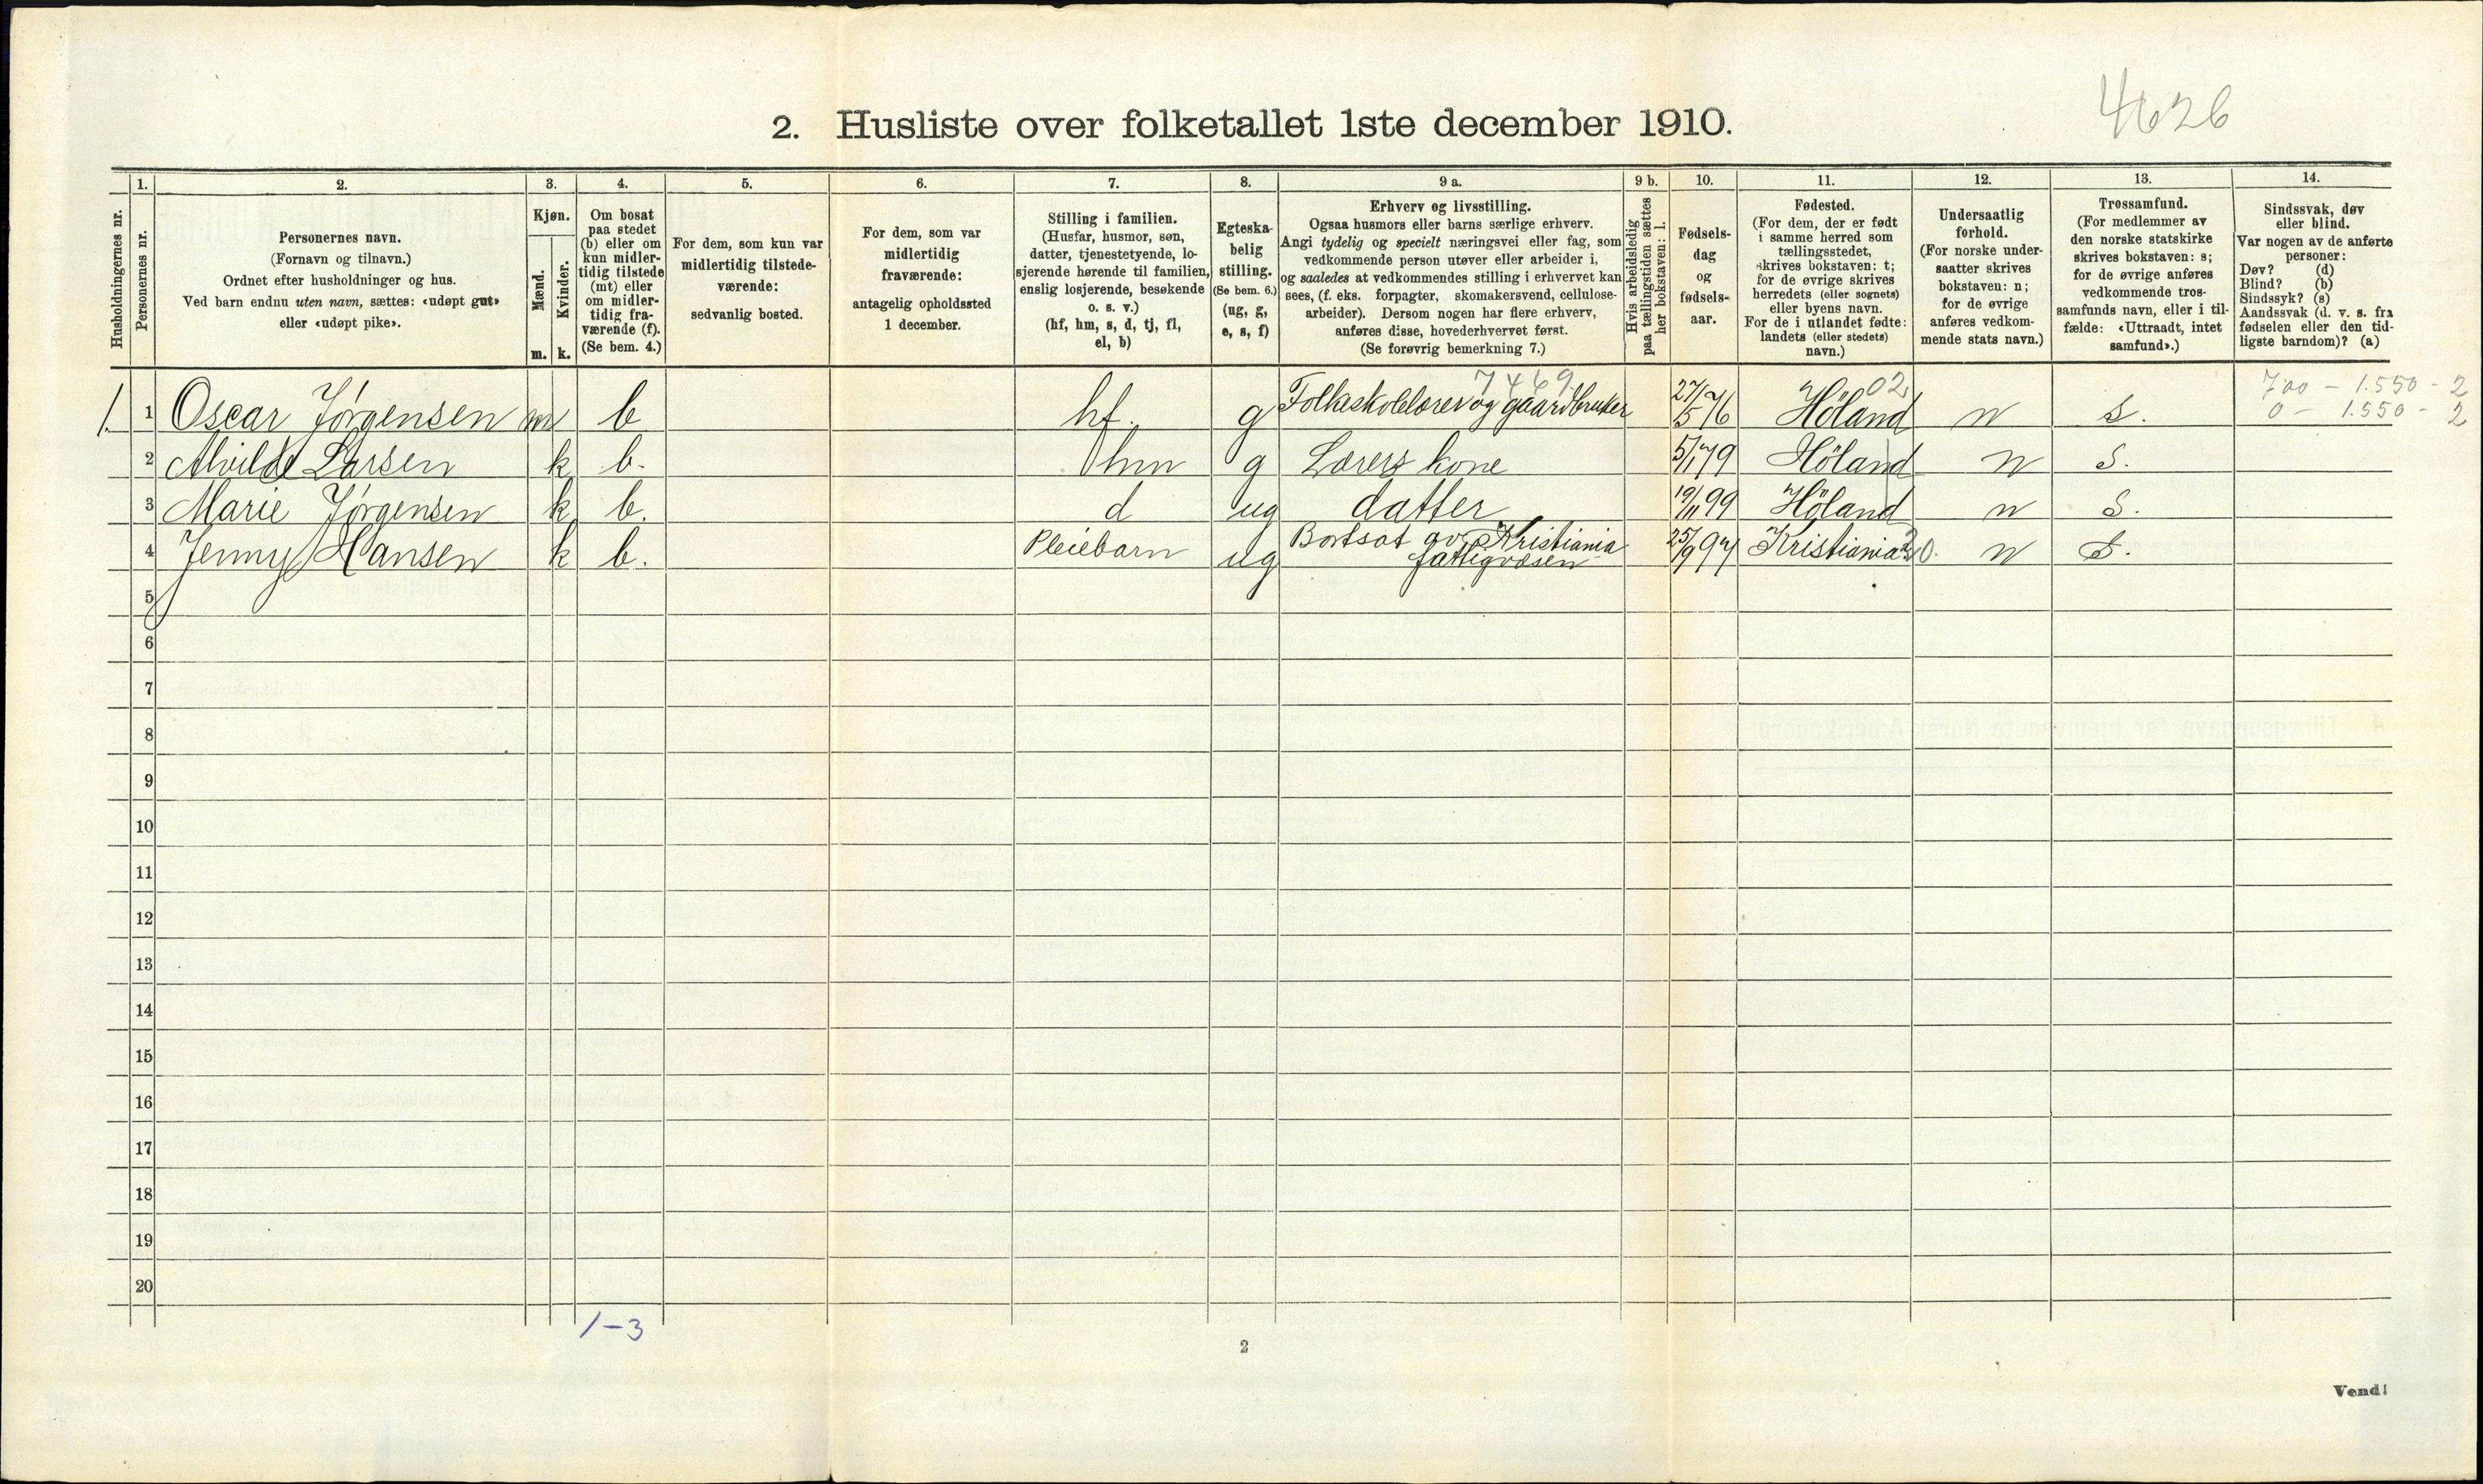 4626
2. Husliste over folketallet 1ste december 1910.
Husholdningernes nr.
1.
Personernes nr.
2.
Personernes navn.
(Fornavn og tilnavn.)
Ordnet efter husholdninger og hus.
Ved barn endnu uten navn, sættes: «udøpt gut»
eller «udøpt pike».
3.
Kjøn.
Mænd.
Kvinder.
m. k.
4.
Om bosat
paa stedet
(b) eller om
kun midler-
tidig tilstede
(mt) eller
om midler-
tidig fra-
værende (f).
(Se bem. 4.)
5.
For dem, som kun var
midlertidig tilstede-
værende:
sedvanlig bosted.
6.
For dem, som var
midlertidig
fraværende:
antagelig opholdssted
1 december.
7.
Stilling i familien.
(Husfar, husmor, søn,
datter, tjenestetyende, lo-
sjerende hørende til familien,
enslig losjerende, besøkende
o. s. v.)
(hf, hm, s, d, tj, fl,
el, b)
8.
Egteska-
belig
stilling.
(Se bem. 6.)
(ug, g,
e, s, f)
9 a.
Erhverv og livsstilling.
Ogsaa husmors eller barns særlige erhverv.
Angi tydelig og specielt næringsvei eller fag, som
vedkommende person utøver eller arbeider i,
og saaledes at vedkommendes stilling i erhvervet kan
sees, (f. eks. forpagter, skomakersvend, cellulose-
arbeider). Dersom nogen har flere erhverv,
anføres disse, hovederhvervet først.
(Se forøvrig bemerkning 7.)
9 b.
Hvis arbeidsledig
paa tællingstiden sættes
her bokstaven: l.
10.
Fødsels-
dag
og
fødsels-
aar.
11.
Fødested.
(For dem, der er født
i samme herred som
tællingsstedet,
skrives bokstaven: t;
for de øvrige skrives
herredets (eller sognets)
eller byens navn.
For de i utlandet fødte:
landets (eller stedets)
navn.)
12.
Undersaatlig
forhold.
(For norske under-
saatter skrives
bokstaven: n;
for de øvrige
anføres vedkom-
mende stats navn.)
13.
Trossamfund.
(For medlemmer av
den norske statskirke
skrives bokstaven: s;
for de øvrige anføres
vedkommende tros-
samfunds navn, eller i til-
fælde: «Uttraadt, intet
samfund».)
14.
Sindssvak, døv
eller blind.
Var nogen av de anførte
personer:
Døv? (d)
Blind? (b)
Sindssyk? (s)
Aandssvak (d. v. s. fra
fødselen eller den tid-
ligste barndom)? (a)
7469 02 700 - 1.550 - 2
1. 1 Oscar Jørgensen m b hf. g Folkeskolelærer og gaardbruker 27/5 76 Höland n s. 0 - 1.550 - 2
2 Alvilde Larsen k b. hm g Lærers kone 5/1 79 Höland n S.
3 Marie Jørgensen k b. d ug datter 19/11 99 Höland n S.
4 Jenny Hansen k b. Pleiebarn ug Bortsat av Kristiania 25/9 97 Kristiania n S.
fattigvæsen
5
6
7
8
9
10
11
12
13
14
15
16
17
18
19
20
1-3
2
Vend!